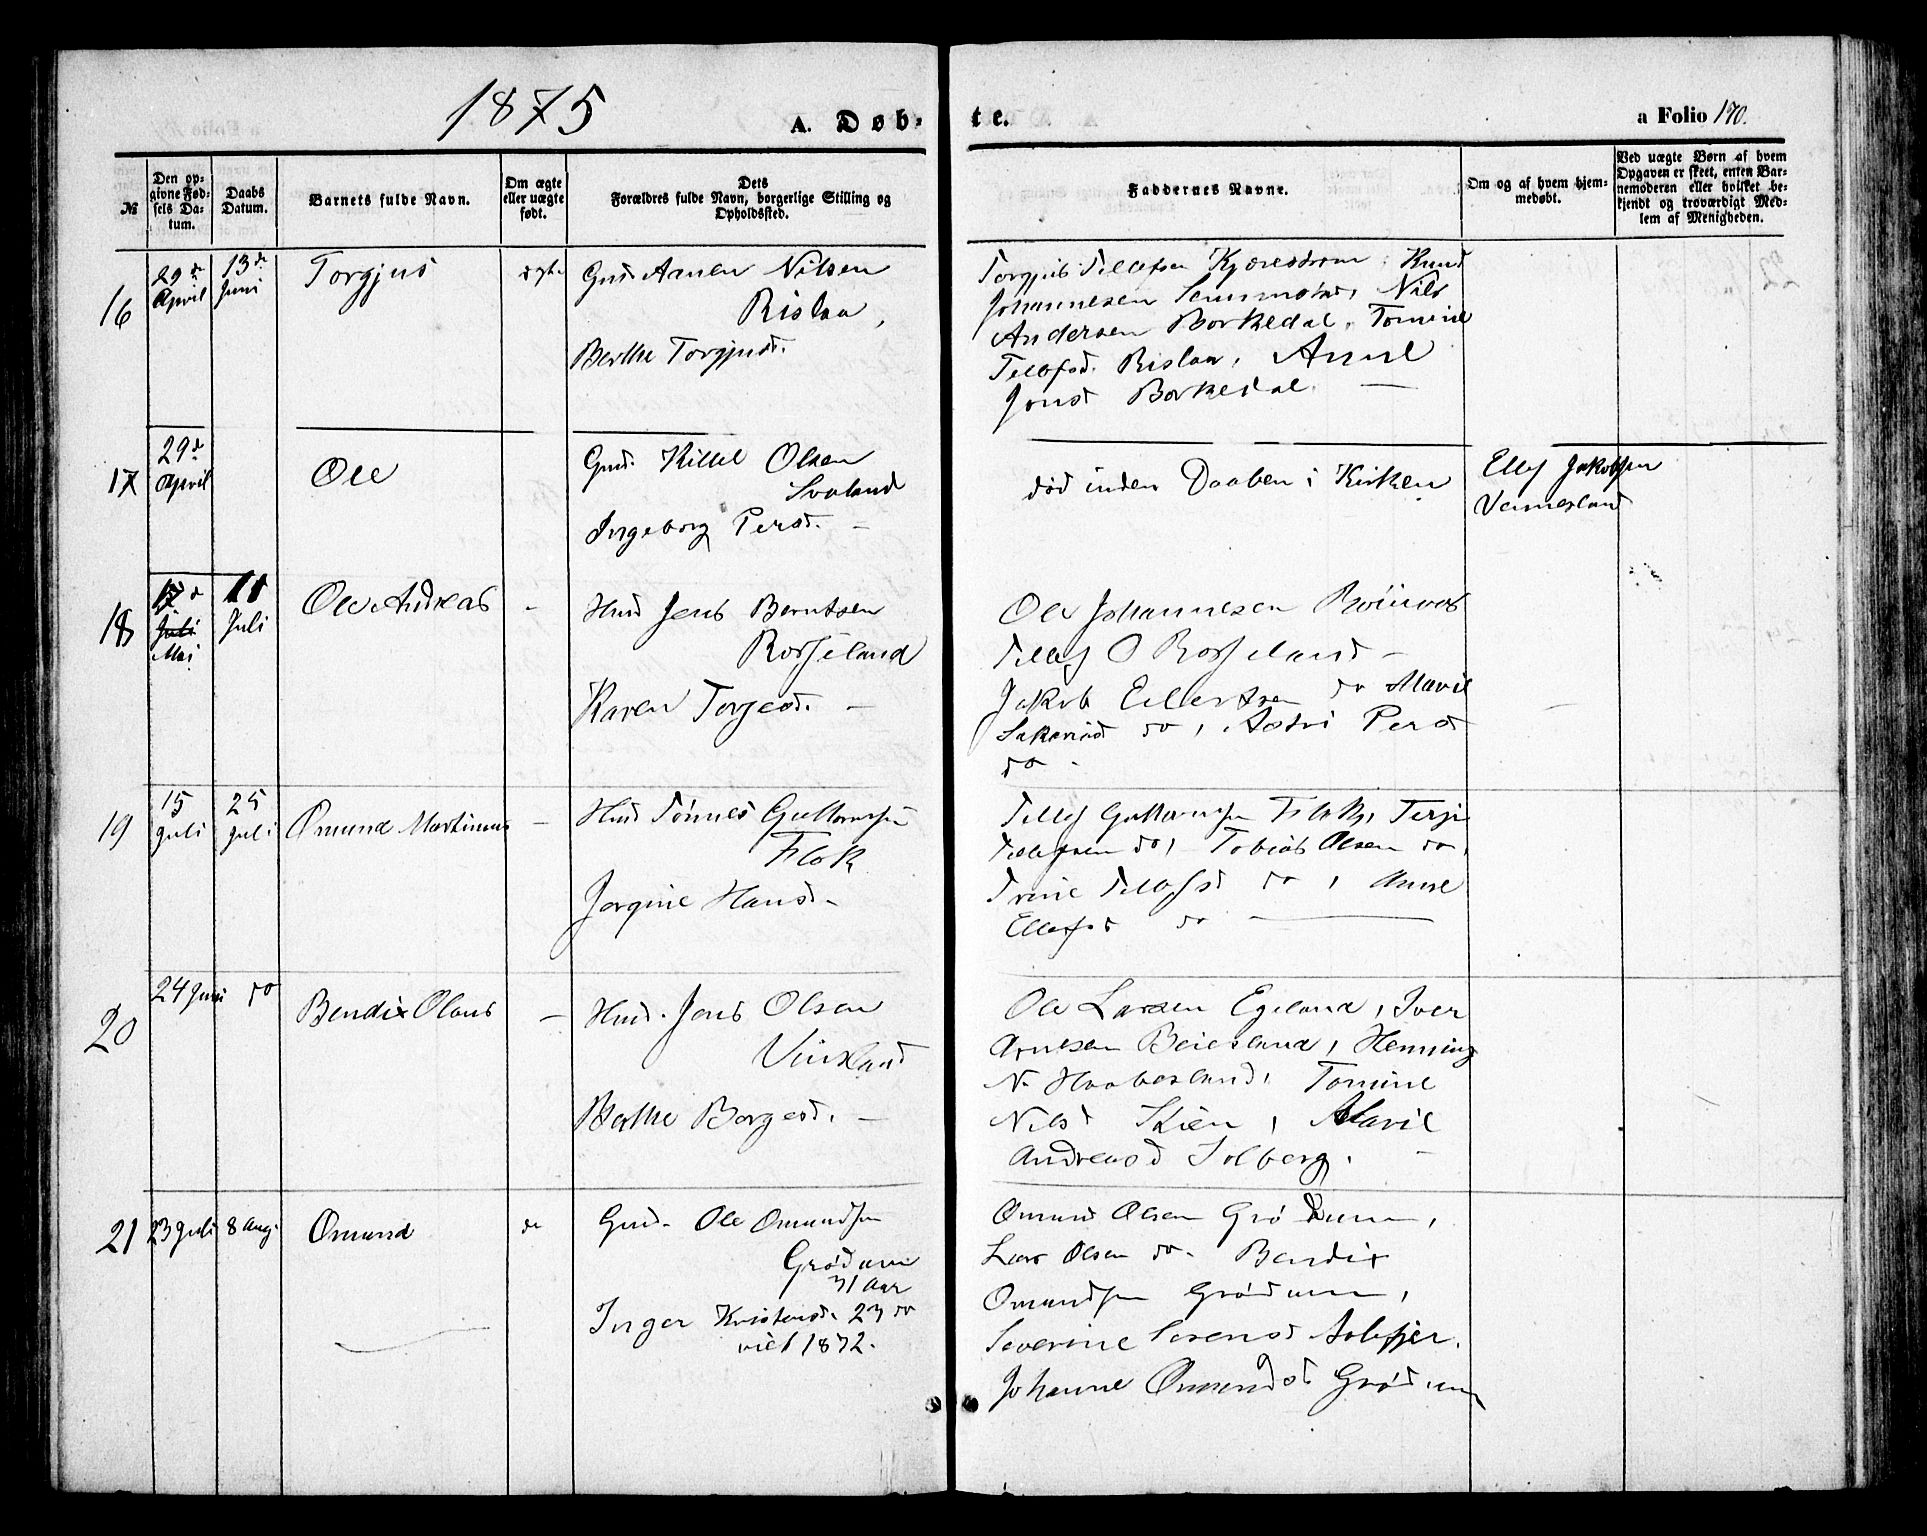 1875
A. Døb-
te.
a Folio 170.
№
Den op-
givne Fød-
sels Da-
tum.
Daabs
Datum.
Barnets fulde Navn.
Om ægte
eller uægte
født.
Dets
Forældres fulde Navn, borgerlige Stilling og
Opholdssted.
Faddernes Navne.
Om og af hvem hjem-
medøbt.
Ved uægte Børn af hvem
Opgaven er skeet, enten Bar-
nemoderen eller hvilket be-
kjendt og troværdigt Med-
lem af Menigheden.
16
29de
April
13de
Juni
Torgjus
ægte
Gmd. Aanen Nilsen
Rislaa,
Berthe Torgjusd.
Torgjus Tellefsen Kjærestrøm, Knud
Johannesen Nils
Andersen Borkedal, Tomine
Tellefsd. Rislaa, Anne
Jonsd Borkedal. —
17
29de
April
Ole
Gmd. Kittel Olsen
Svaland
Ingeborg Persd. —
død inden Daaben i Kirken
Ellef Jakobsen
Vennesland
18
17de
Juli
Mai
11
Juli
Ole Andreas
-
Hmd Jens Berntsen
Rosseland
Karen Torjesd. —
Ole Johannesen
Tellef O Rosseland —
Jakob Eilertsen do Marie
do, Astri Persd
do -
19
15
Juli
25
Juli
Omund Martinus
—
Hmd Tønnes Guttormsen
Flak
Jorgine Hansd. -
Tellef Guttormsen Flak, Terje
Tellefsen do, Tobias Olsen do,
Trine Tellefsd do, Anne
Ellefsd do —
20
24 Juni
do
Bendix Olaus
—
Hmd. Jens Olsen
Berthe Borgesd. —
Ole Larsen Egeland, Iver
Arnesen Beiesland, Henning
N. Haabesland, Tomine
Nilsd Skien, Marie
Andreasd Solberg.
21
23 Juli
8 Aug.
Omund
do
Gmd. Ole Omundsen
Grødum
31 Aar
Inger Kristensd. 23 do
viet 1872.
Omund Olsen Grødum,
Lars Olsen do. Bendix
Omundsen Grødum,
Severine Sørensd
Johanne Omundsd Grødum